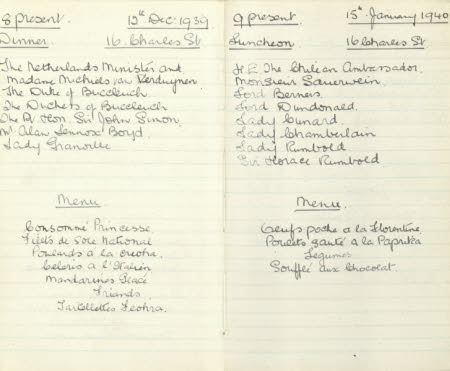 8 present. 12th Dec: 1939
Dinner. 16 Charles St
The Netherlands Minister and
Madame Michiels van Verduynen
The Duke of Buccleuch
The Duchess of Buccleuch
The Rt Hon. Sir John Simon.
Mr Alan Lennox Boyd
Lady Granville
Menu
Consommé Princesse
Filets de Sole National
à la
Celeris a l'Italien
Mandarines Glacé
Friands
Tartelettes
9 present. 15th January 1940
Luncheon 16 Charles St
H.E. The Chilean Ambassador.
Monsieur Sauerwein.
Lord Berners.
Lord Dundonald.
Lady Cunard.
Lady Chamberlain
Lady Rumbold
Sir Horace Rumbold
Menu.
Oeufs poche a la Florentine.
Poulets sauté a la Paprika
Legumes
Soufflé aux Chocolat.